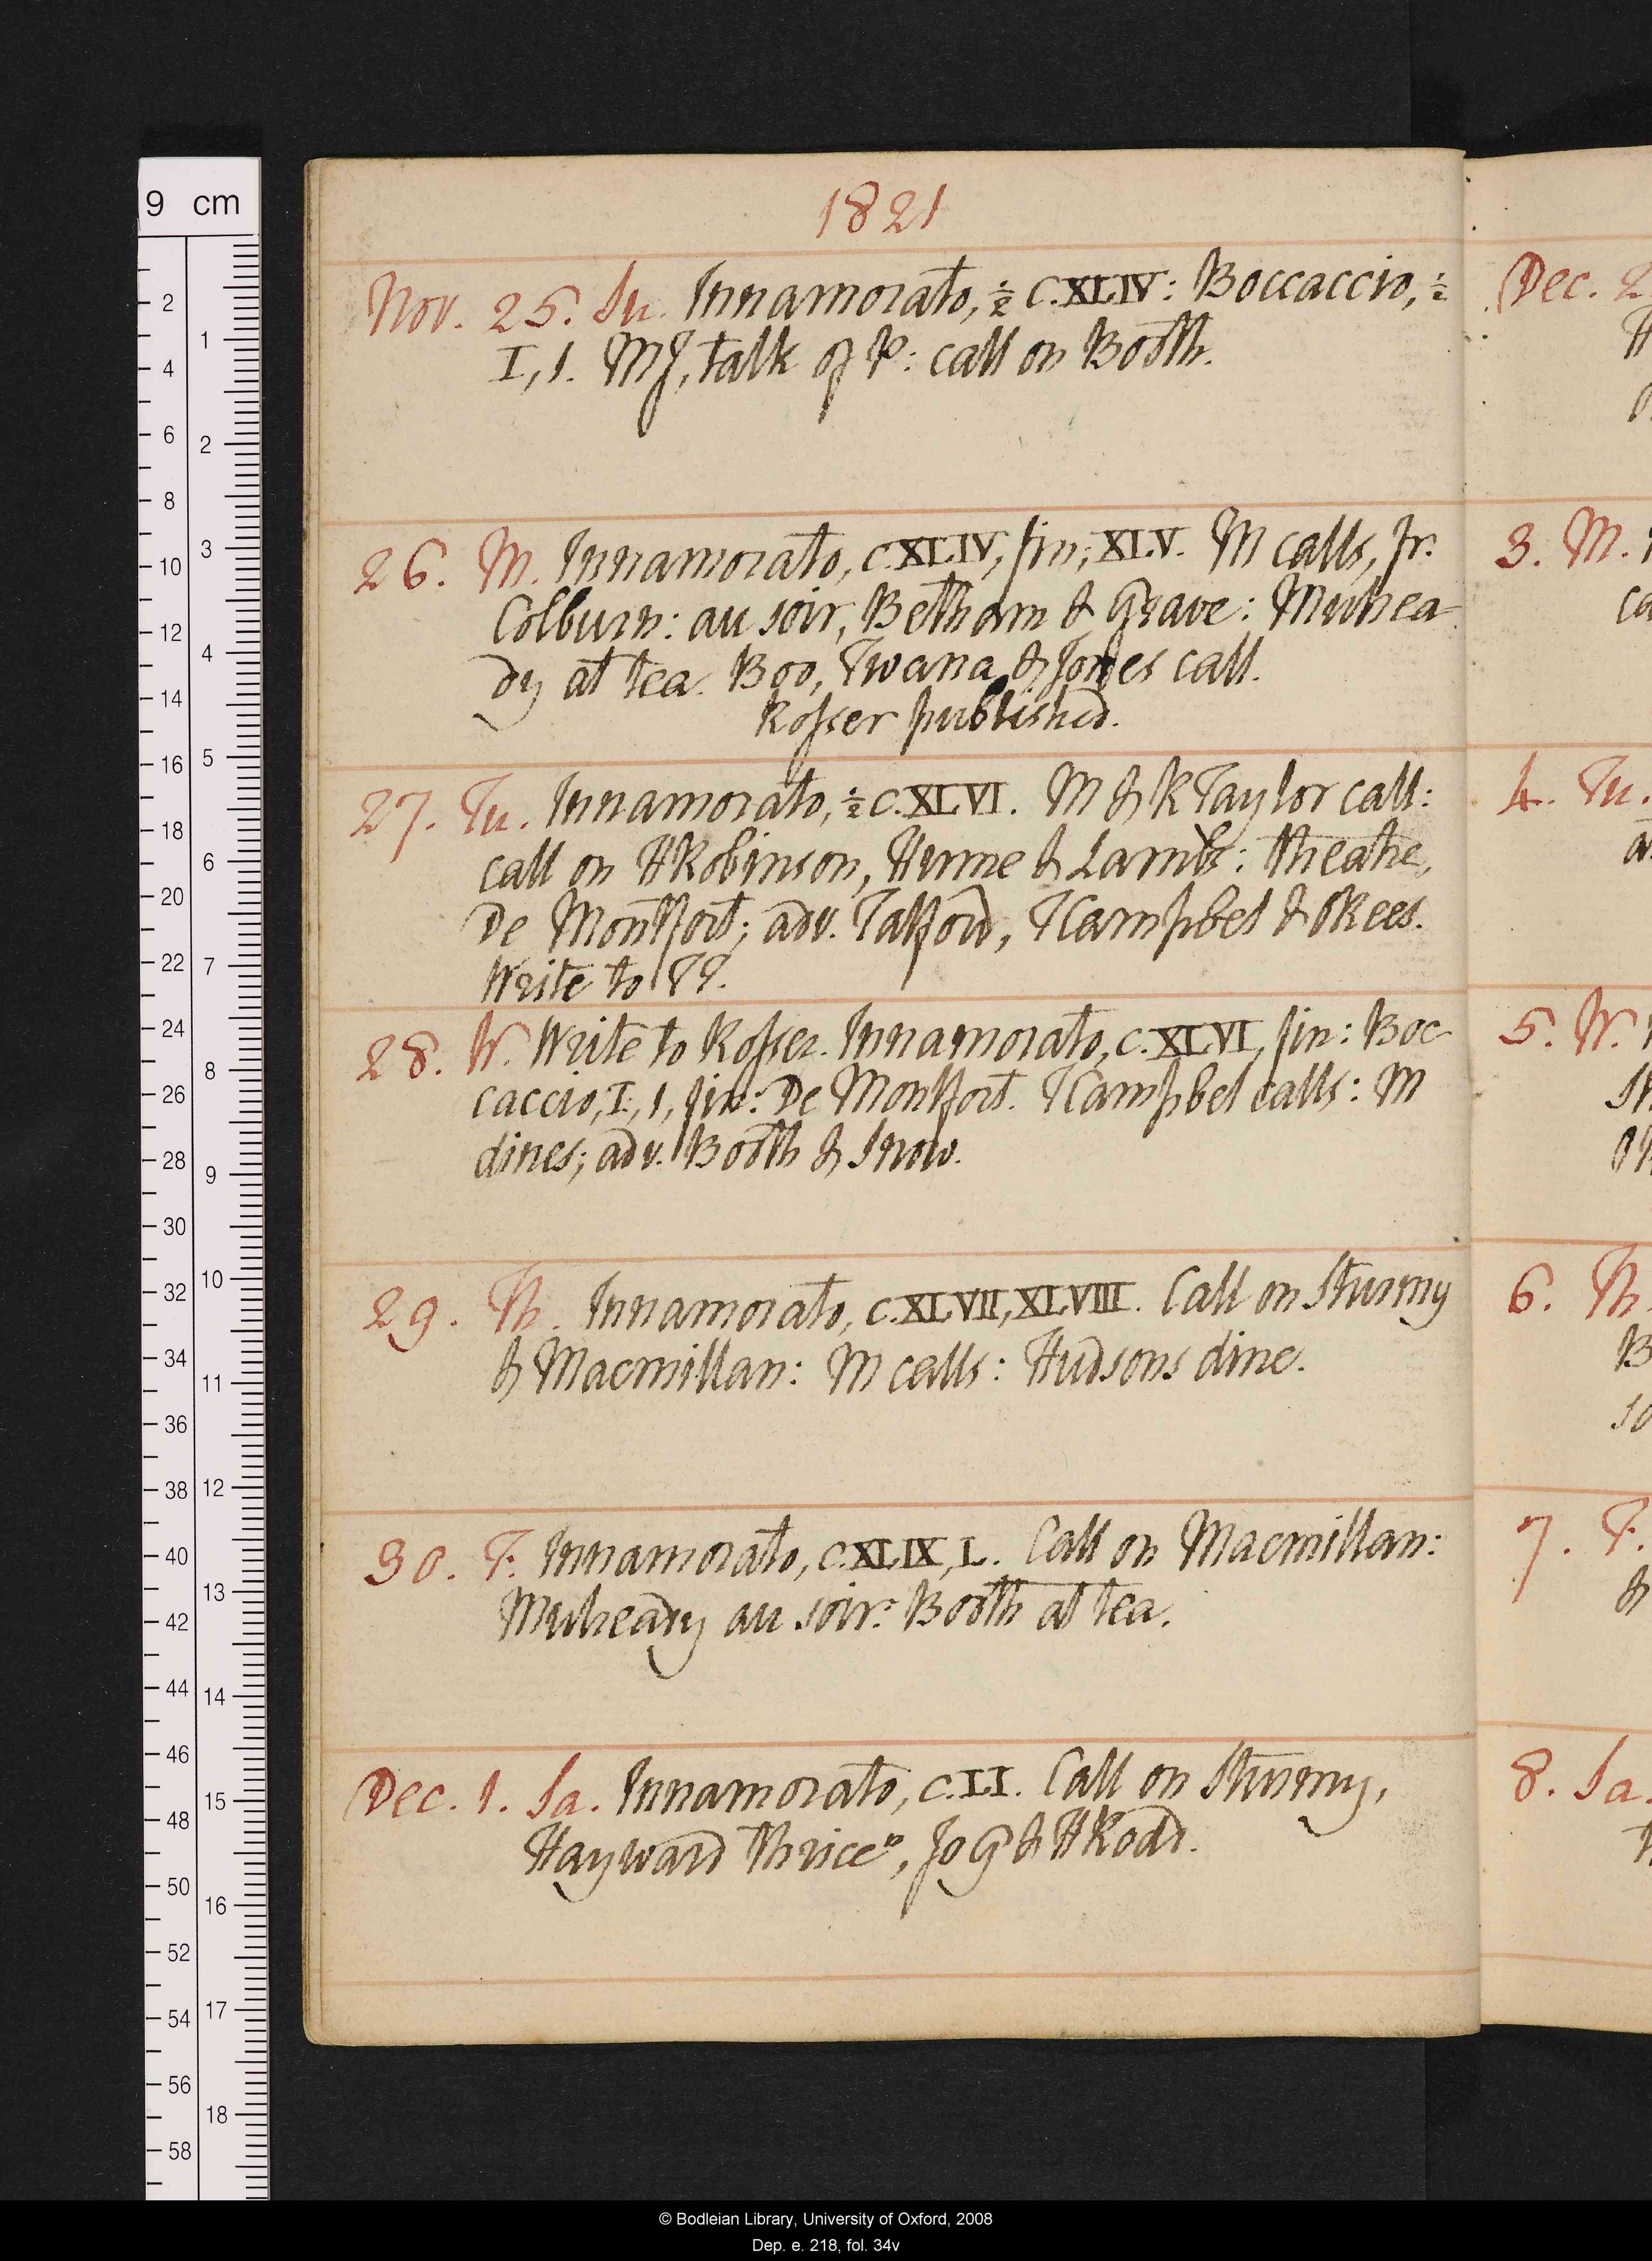 1821
Nov. 25. Su. Innamorato, ½ c. XLIV: Boccaccio, ½
I, 1. MJ, talk of P: call on Booth.
26. M. Innamorato, c. XLIV, fin; XLV. M calls, fr.
Colburn: au soir, Betham & Grave: Mulrea-
dy at tea. Boo, Twana & Jones call.
Rosser published.
27. Tu. Innamorato, ½ c. XLVI. M & R Taylor call:
call on H Robinson, Hume & Lambs: theatre,
De Montfort; adv. Talford, T Campbel & O Rees.
Write to
28. W. Write to Rosser. Innamorato, c. XLVI, fin: Boc-
caccio, I, 1, fin: De Montfort. T Campbel calls: M
dines; adv. Booth & Snow.
29. Th. Innamorato, c. XLVII, XLVIII. Call on Sturmy
& Macmillan: M calls: Hudsons dine.
30. F. Innamorato, c. XLIX, L. Call on Macmillan:
Mulready au soir: Booth at tea.
Dec. 1. Sa. Innamorato, c. LI. Call on Sturmy,
Hayward thrice°, Jo G & H Rodd.
Dec. 2
3. M.
ca
4. Tu.
5. W.
6. Th
B
so
7. F.
&
8. Sa.
9 cm
2
4
6
8
10
12
14
16
18
20
22
24
26
28
30
32
34
36
38
40
42
44
46
48
50
52
54
56
58
1
2
3
4
5
6
7
8
9
10
11
12
13
14
15
16
17
18
© Bodleian Library, University of Oxford, 2008
Dep. e. 218, fol. 34v